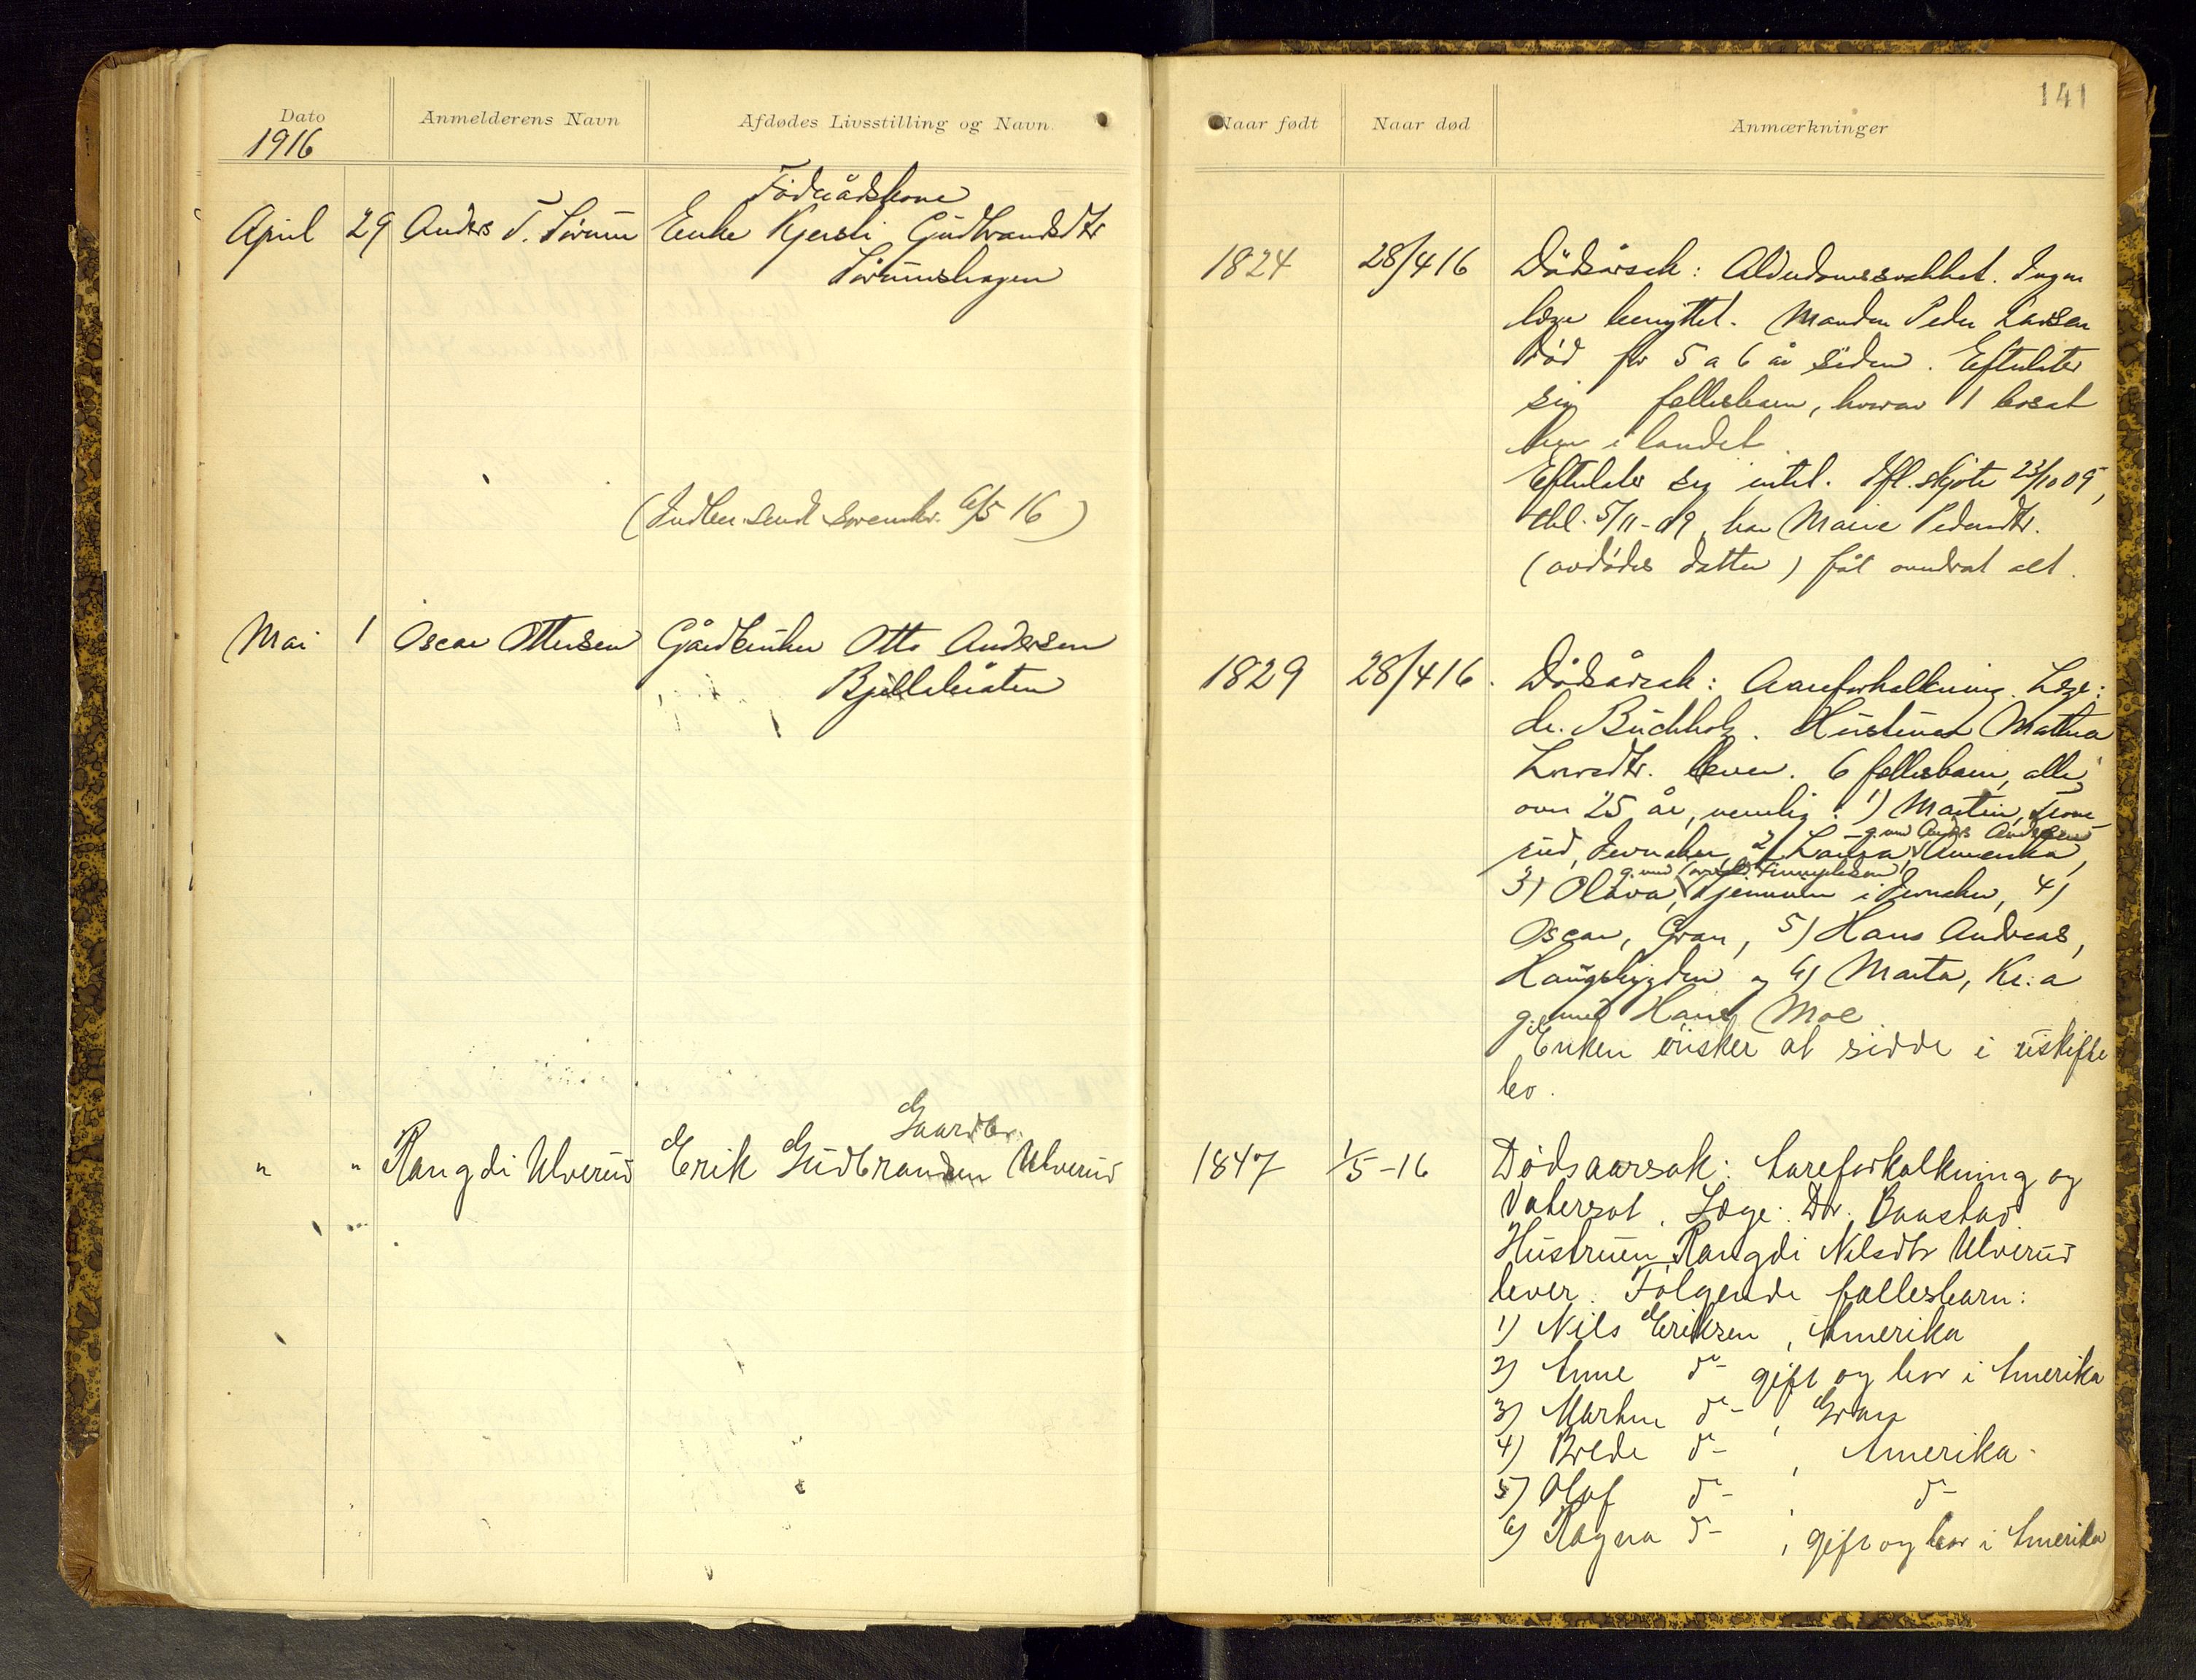 141
Dato
1916
Anmelderens Navn
Afdødes Livsstilling og Navn
Naar født
Naar død
Anmærkninger
Föderådskone
April 29 Anders T. Sörum Enke Kjersti Gudbrandsdtr
Sörumshagen
1824 28/4 16 Dödsårsak: Alderdomssvakhet. Ingen
læge benyttet. Manden Peder Larsen
död for 5 a 6 år siden. Efterlater
sig fellesbarn, hvorav 1 bosat
her i landet.
Efterlater sig intet. Ifl. skjöte 23/10 09,
tbl. 5/11-09, har Marie Pedersdtr.
(avdödes datter) fåt overdrat alt.
(Indber. sendt sorenskr. 6/5 16)
Mai 1 Oscar Ottersen Gårdbruker Otto Andersen
Bjellabråten
1829 28/4 16. Dödsårsak: Aareforkalkning. Læge:
dr. Buchholz. Hustruen Mathea
Larsdtr. lever. 6 fellesbarn, alle
over 25 år, nemlig: 1) Martin,
rud, Jevnaker, 2) Laura, Amerika,
g. med Anders Andersen
3) Olava, Bjennum i Jevnaker, 4)
g. med
Oscar, Gran, 5) Hans Andreas,
Haugsbygden og 6) Marta, Kr.a
g. med Hans Moe
Enken önsker at sidde i uskifte
bo.
Gaardbr.
" " Rangdi Ulverud Erik Gudbrandsen Ulverud
1847 1/5-16 Dödsaarsak: Aareforkalkning og
Vatersot. Læge: Dr. Baastad
Hustruen Rangdi Nilsdtr Ulverud
lever. Følgende fællesbarn:
1) Nils Eriksen, Amerika
2) Anne do- gift og bor i Amerika
3) Martin do-, Gran
4) Brede do-, Amerika-
5) Olaf do-, do-
6) Ragna do-, gift og bor i Amerika